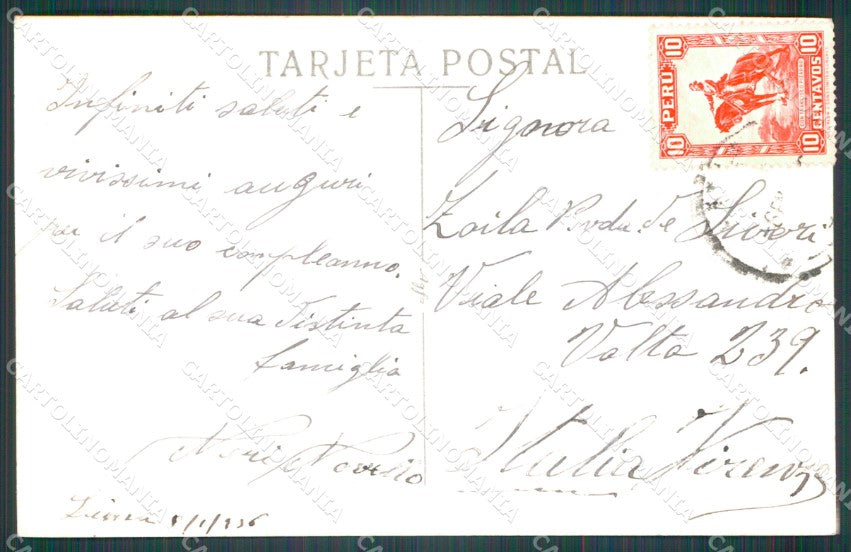 TARJETA POSTAL
Infiniti saluti e
vivissimi auguri
per il suo compleanno.
Saluti al sua Distinta
famiglia
Lima 1/1/936
Signora
Zoila de
Viale Alessandro
Volta 239.
Italia Firenze
PERU
10 10
10 CENTAVOS 10
CARTOLINOMANIA